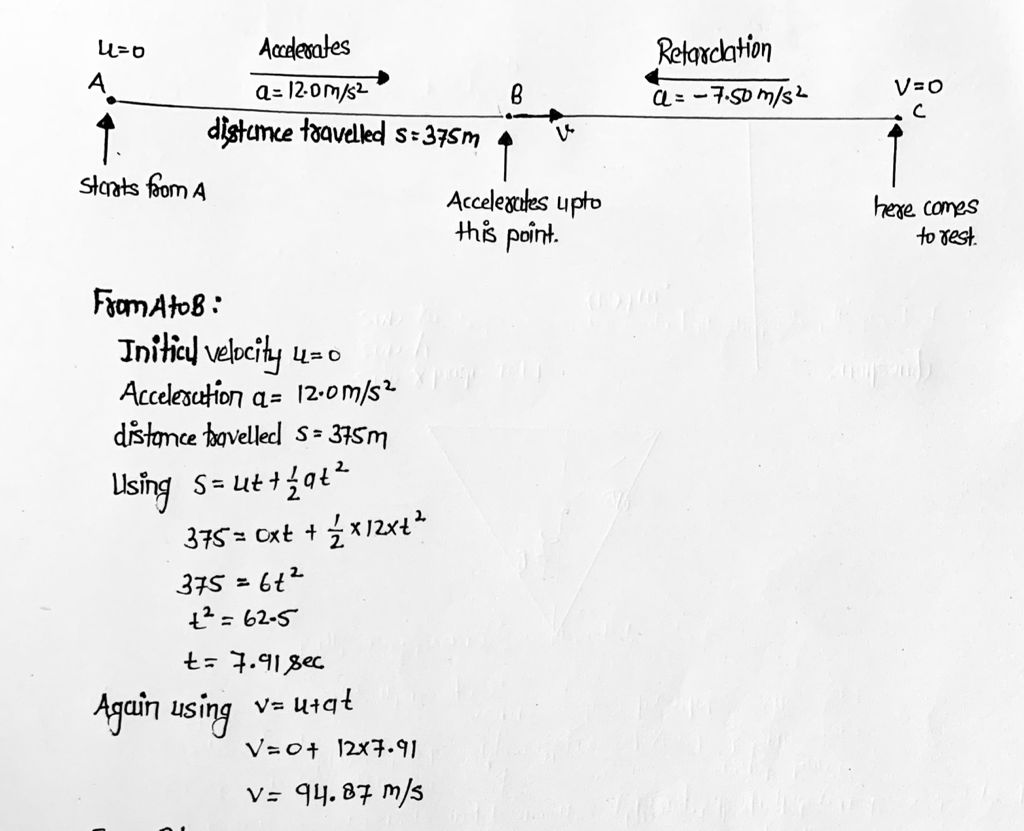 u=0
Accelerates
Retardation
A
a=12.0m/s²
B
a=-7.50m/s²
V=0
C
distance travelled s=375m
v
Starts from A
Accelerates upto
this point.
here comes
to rest.
From A to B:
Initial velocity u=0
Acceleration a= 12.0m/s²
distance travelled s=375m
Using s=ut+½at²
375=0xt + ½x12xt²
375 = 6t²
t² = 62.5
t= 7.91 sec
Again using v=u+at
V=0+ 12x7.91
v= 94.87 m/s